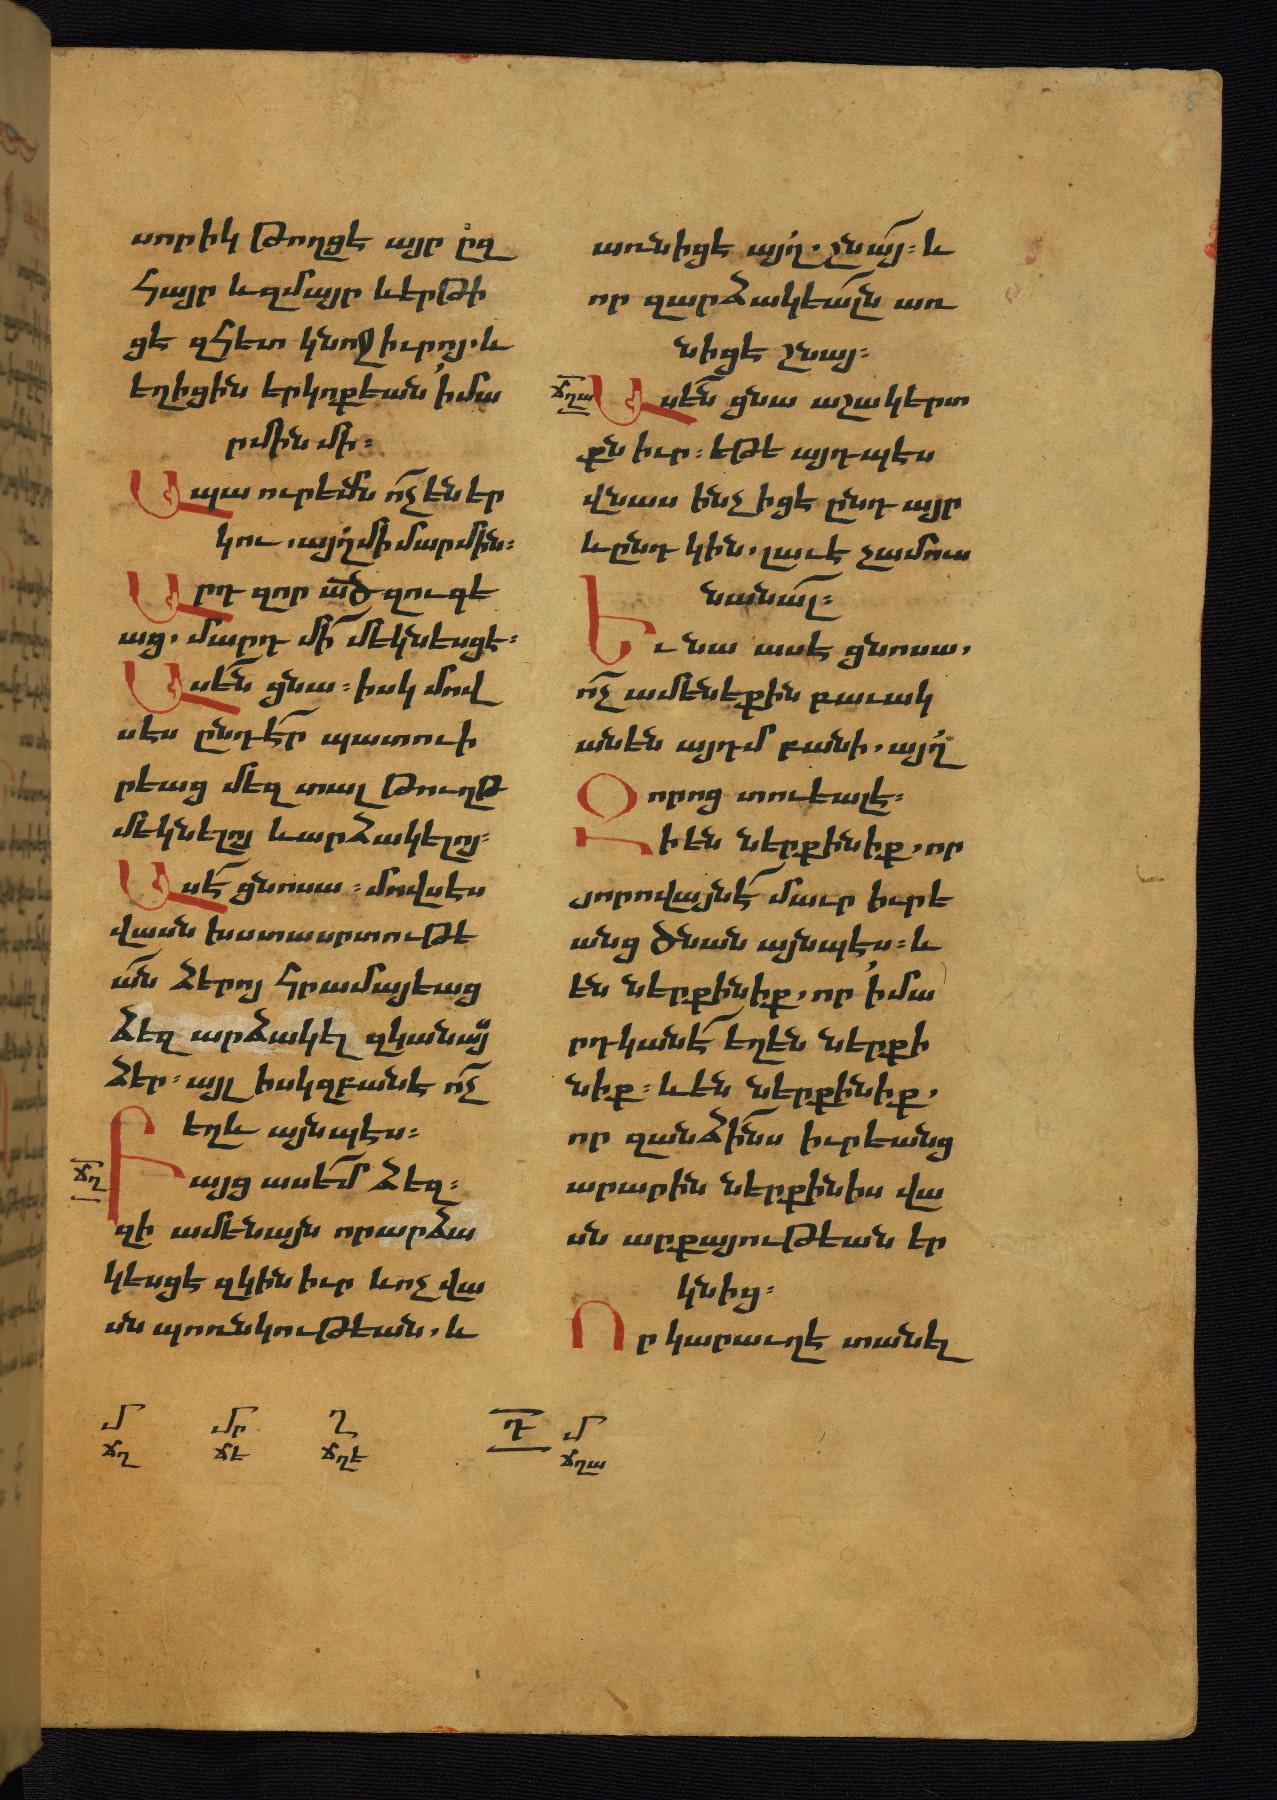 սորիկ թողցէ այր ըզ
հայր և զմայր և երթի
ցէ զհետ կնոջ իւրոյ. և
եղիցին երկոքեան՛ի մա
րմին մի։
Ապա ուրեմն ո՞չ են եր
կու, այղ մի մարմին։
Արդ զոր ած զուգե
աց, մարդ մի՛ մեկնեսցէ։
Ասեն ցնա։ իսկ մով
սէս ընդէր պատուի
րեաց մեզ տալ թուղթ
մեկնելոյ և արձակելոյ։
Ասէ ցնոսա։ մովսէս
վասն խստասրտութե
ան ձերոյ հրամայեաց
ձեզ արձակել զկանայս
ձեր։ այլ ի սկզբանէ ոչ
եղև այնպէս։
ճղ
Բայց ասեմ ձեզ։
զի ամենայն որ արձա
կեսցէ զկին իւր և ոչ վա
սն պոռնկութեան, և
առնիցէ այղ. շնայ։ և
որ զարձակեալն առ
նիցէ շնայ։
ճղա
Ասեն ցնա աշակերտ
քն իւր։ եթե այդպէս
վնաս ինչ իցէ ընդ այր
և ընդ կին, լաւ է չամուս
նանալ։
Եւ նա ասէ ցնոսա,
ոչ ամենեքին բաւակ
անեն այդմ բանի, այղ
Որոց տուեալ է։
Զի են ներքինիք, որ
յորովայնէ մաւր իւրե
անց ծնան այնպէս։ և
են ներքինիք, որ՛ի մա
րդկանէ եղեն ներքի
նիք։ և են ներքինիք,
որ զանձինս իւրեանց
արարին ներքինիս վա
սն արքայութեան եր
կնից։
Որ կարաւղ է տանել
մ մր ղ դ մ
ճղ ճե ճղե ճղա